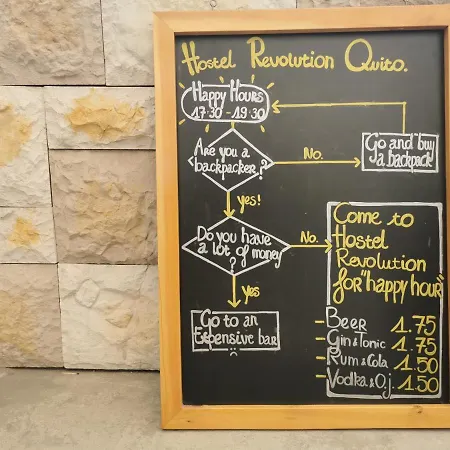 Hostel Revolution Quito.
Happy Hours
17:30 - 19:30
Are you a
backpacker?
No.
Go and buy
a backpack!
yes!
Do you have
a lot of money
?
No.
yes
Go to an
Expensive bar
Come to
Hostel
Revolution
for "happy hour"
Beer 1.75
Gin & Tonic 1.75
Rum & Cola 1.50
Vodka & O.j. 1.50